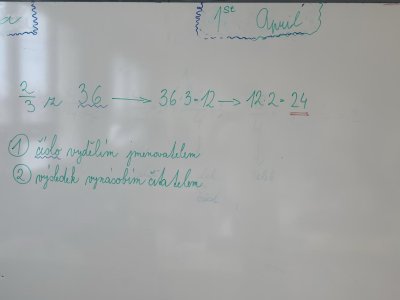 a
1st April
2/3 z 36 → 36:3=12 → 12·2=24
① číslo vydělím jmenovatelem
② výsledek vynásobím čitatelem